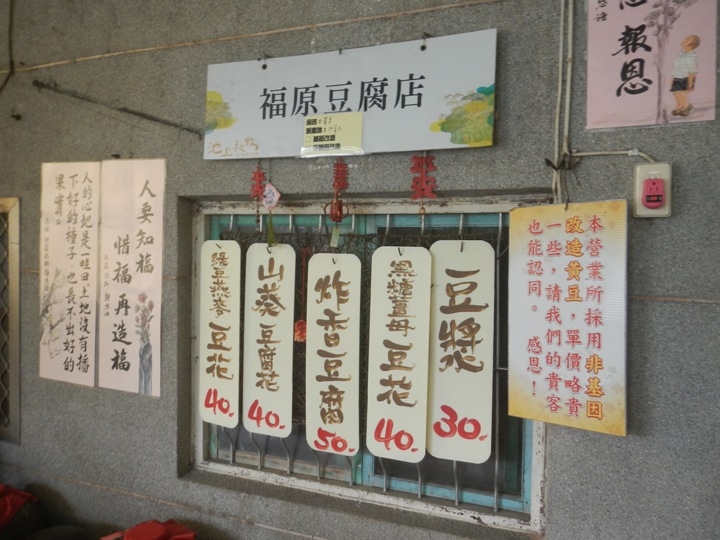 報恩
福原豆腐店
池上秋鴨
人要知福
惜福再造福
人的心地是一畦田土地沒有播
下好的種子也長不出好的
果實。
綠豆燕麥豆花
40.
山葵豆腐花
40.
炸香豆腐
50.
黑糖薑母豆花
40.
豆漿
30.
本營業所採用非基因
改造黃豆，單價略貴
一些，請我們的貴客
也能認同。感恩！